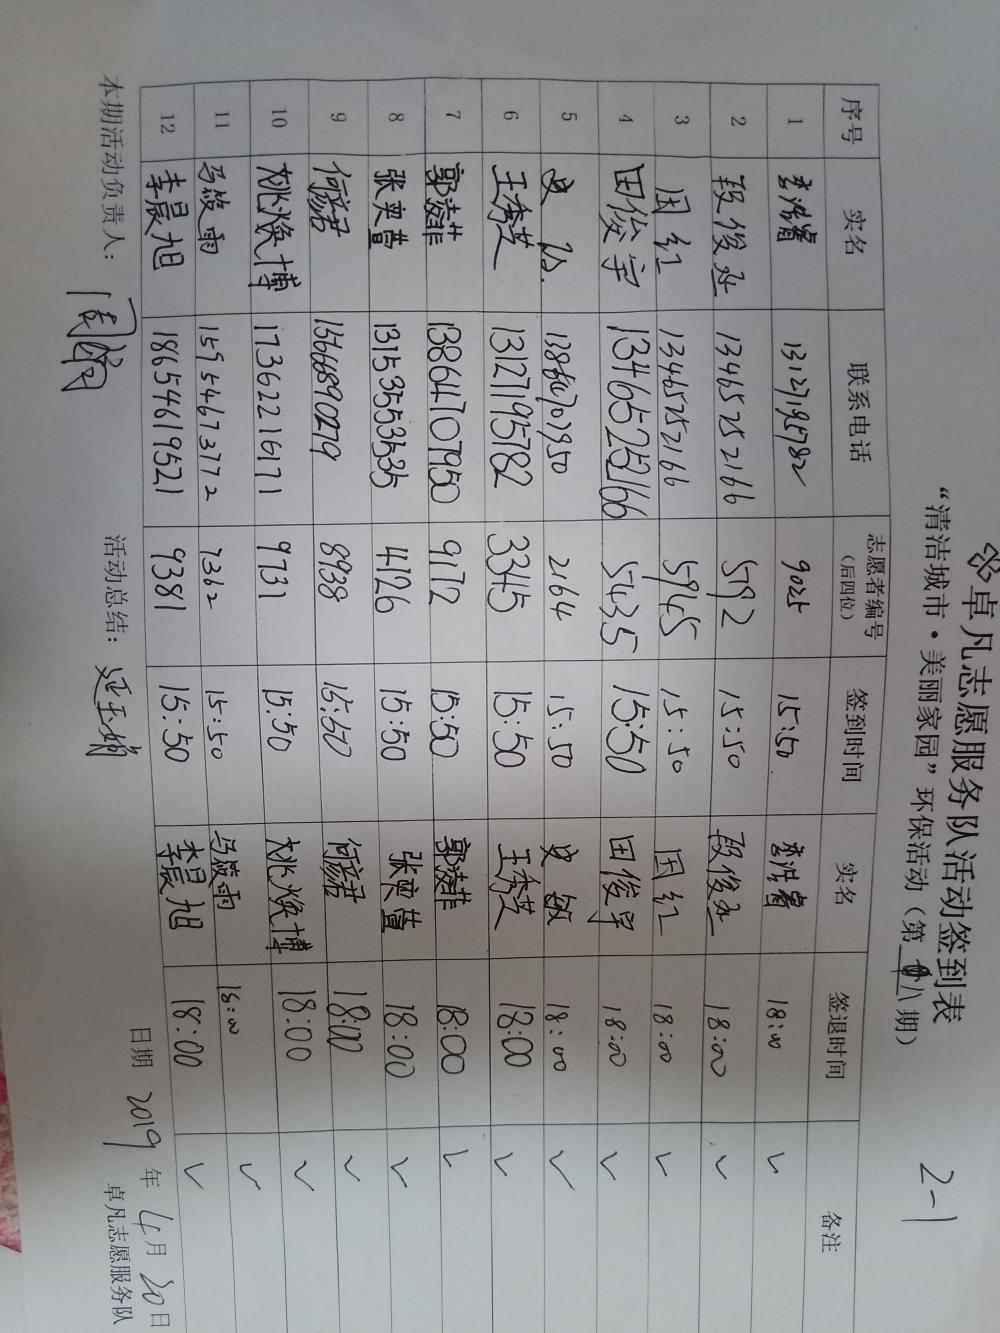 卓凡志愿服务队活动签到表
2-1
“清洁城市·美丽家园”环保活动（第 八 期）
序号 实名 联系电话 志愿者编号（后四位） 签到时间 实名 签退时间 备注
1 李浩睿 13127195782 9025 15:50 李浩睿 18:00 ✓
2 段俊 13465252166 5792 15:50 段俊 18:00 ✓
3 国红 13465252166 5945 15:50 国红 18:00 ✓
4 田俊宇 13465252166 5435 15:50 田俊宇 18:00 ✓
5 史 13864707950 2164 15:50 史敏 18:00 ✓
6 王秀芝 13127195782 3345 15:50 王秀芝 18:00 ✓
7 郭凌菲 13864707950 9172 15:50 郭凌菲 18:00 ✓
8 张奕萱 13153553535 4126 15:50 张奕萱 18:00 ✓
9 何 15666890279 8938 15:50 何 18:00 ✓
10 姚焕博 17362216171 9731 15:50 姚焕博 18:00 ✓
11 马筱雨 15954673772 7362 15:50 马筱雨 18:00 ✓
12 李晨旭 18654619521 9381 15:50 李晨旭 18:00 ✓
本期活动负责人： 活动总结： 延玉娟 日期 2019 年 4 月 20 日
卓凡志愿服务队